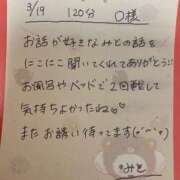 3/19 120分 O様
お話が好きなみとの話を
にこにこ聞いてくれてありがとう♡
お風呂やベッドで2回戦して
気持ちよかったね♡
またお誘い待ってます(๑˃̵ᴗ˂̵)
みと